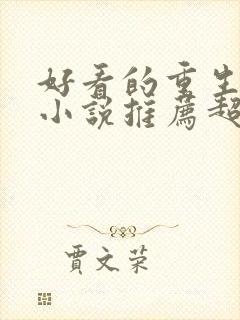 好看的重生
小說推薦超
賈文榮